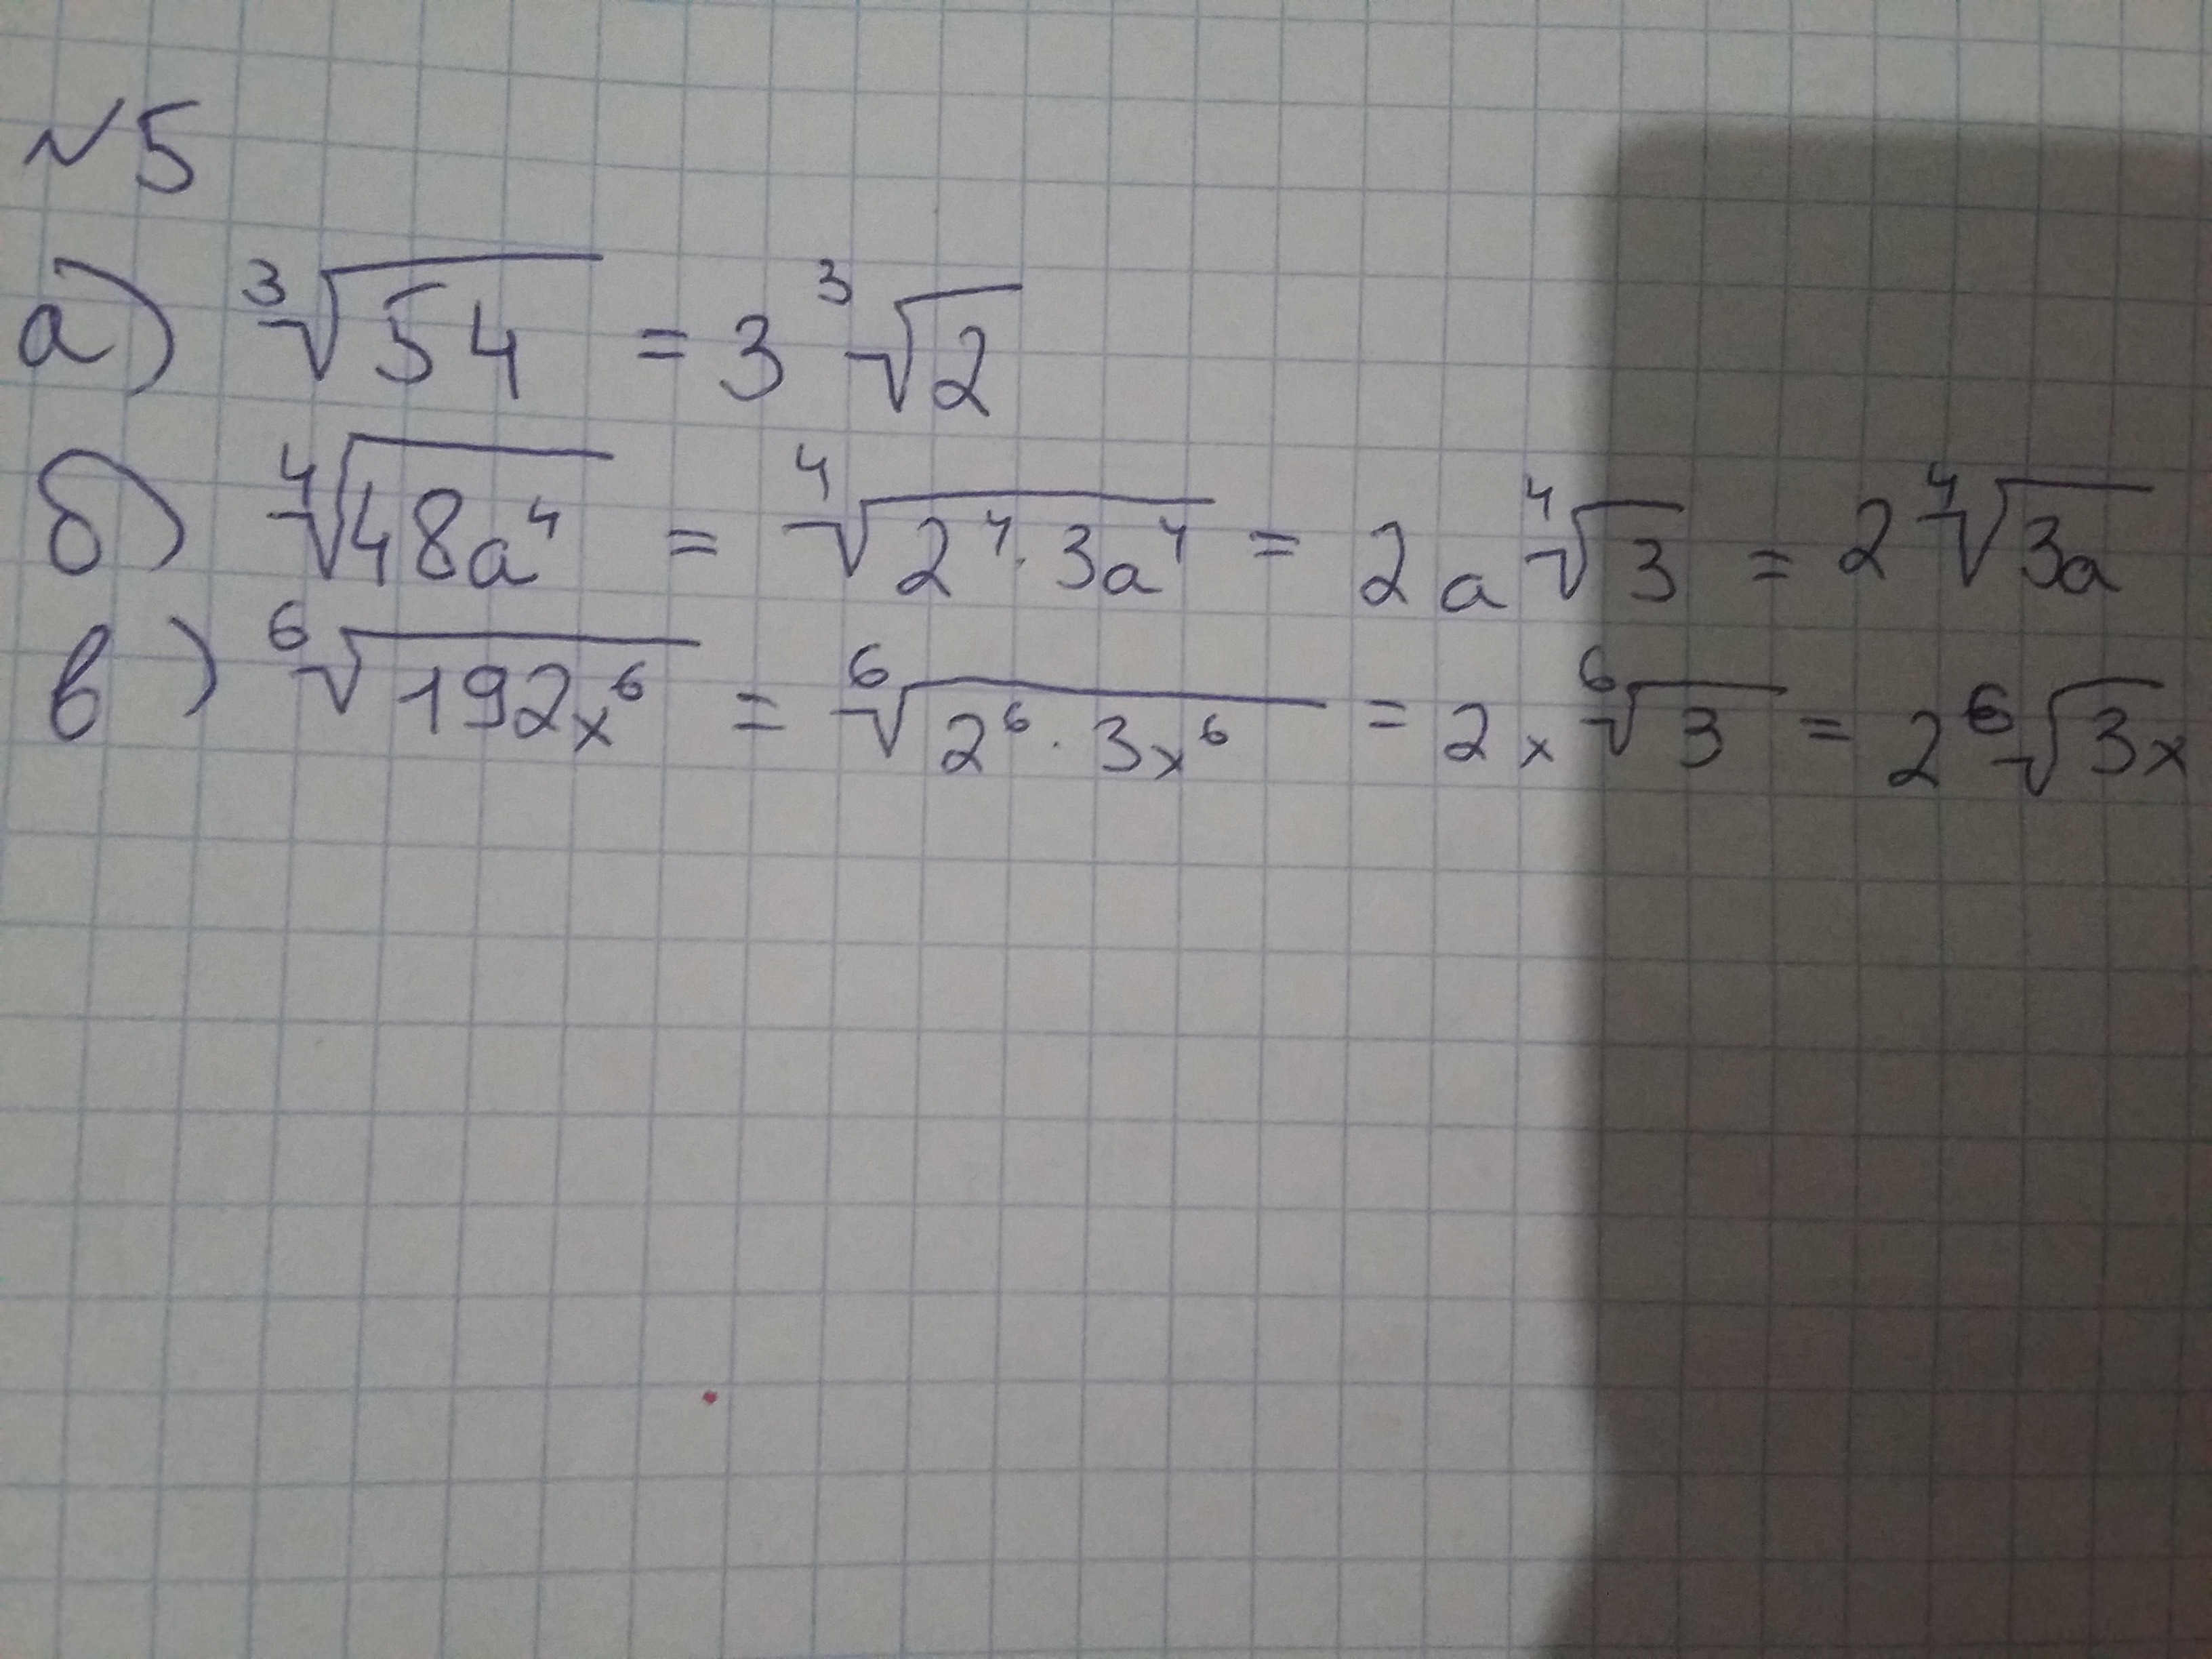 №5
а) ∛54 = 3 ∛2
б) ∜48a⁴ = ∜2⁴·3a⁴ = 2a ∜3 = 2 ∜3a
в) ⁶√192x⁶ = ⁶√2⁶·3x⁶ = 2x ⁶√3 = 2 ⁶√3x